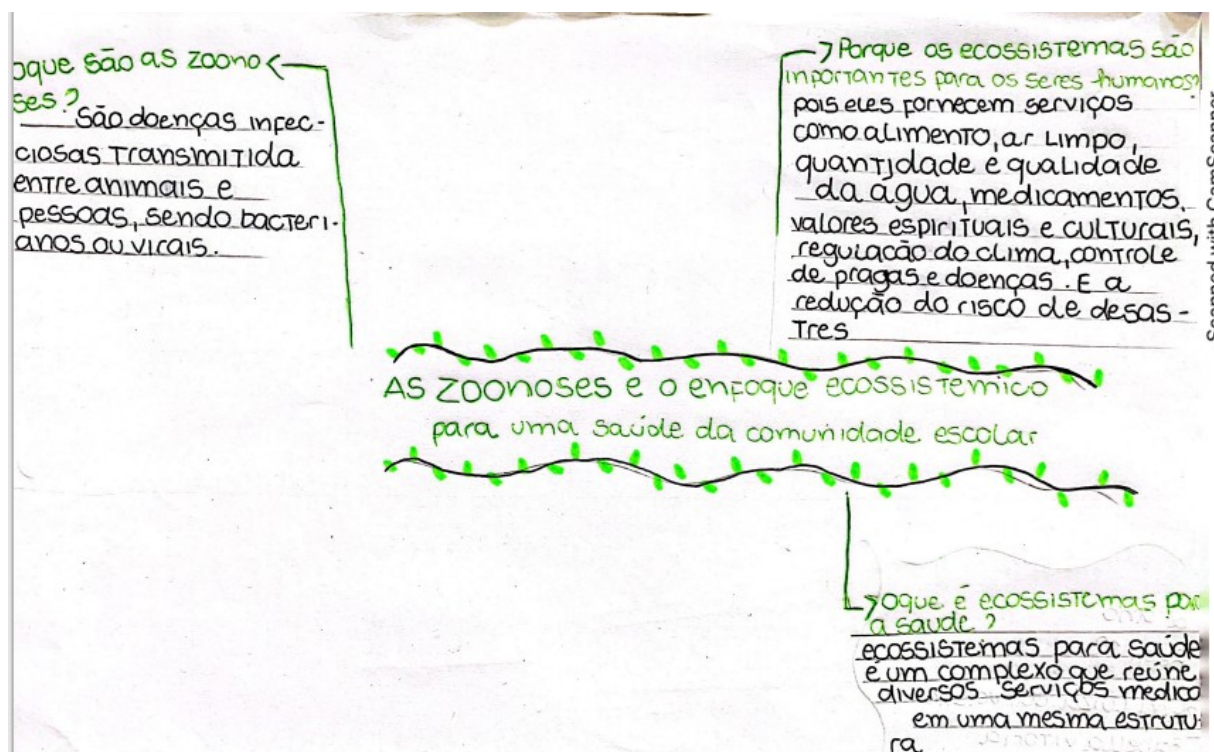 oque são as zoono
ses?
São doenças infec-
ciosas transmitida
entre animais e
pessoas, sendo bacteri-
anos ou virais.
Porque os ecossistemas são
inportantes para os seres humanos?
pois eles fornecem serviços
como alimento, ar limpo,
quantidade e qualidade
da água, medicamentos,
valores espirituais e culturais,
regulação do clima, controle
de pragas e doenças. E a
redução do risco de desas-
tres
As zoonoses e o enfoque ecossistemico
para uma saúde da comunidade escolar
oque é ecossistemas para
a saude?
ecossistemas para saúde
é um complexo que reúne
diversos serviços medico
em uma mesma estrutu-
ra
Scanned with CamScanner